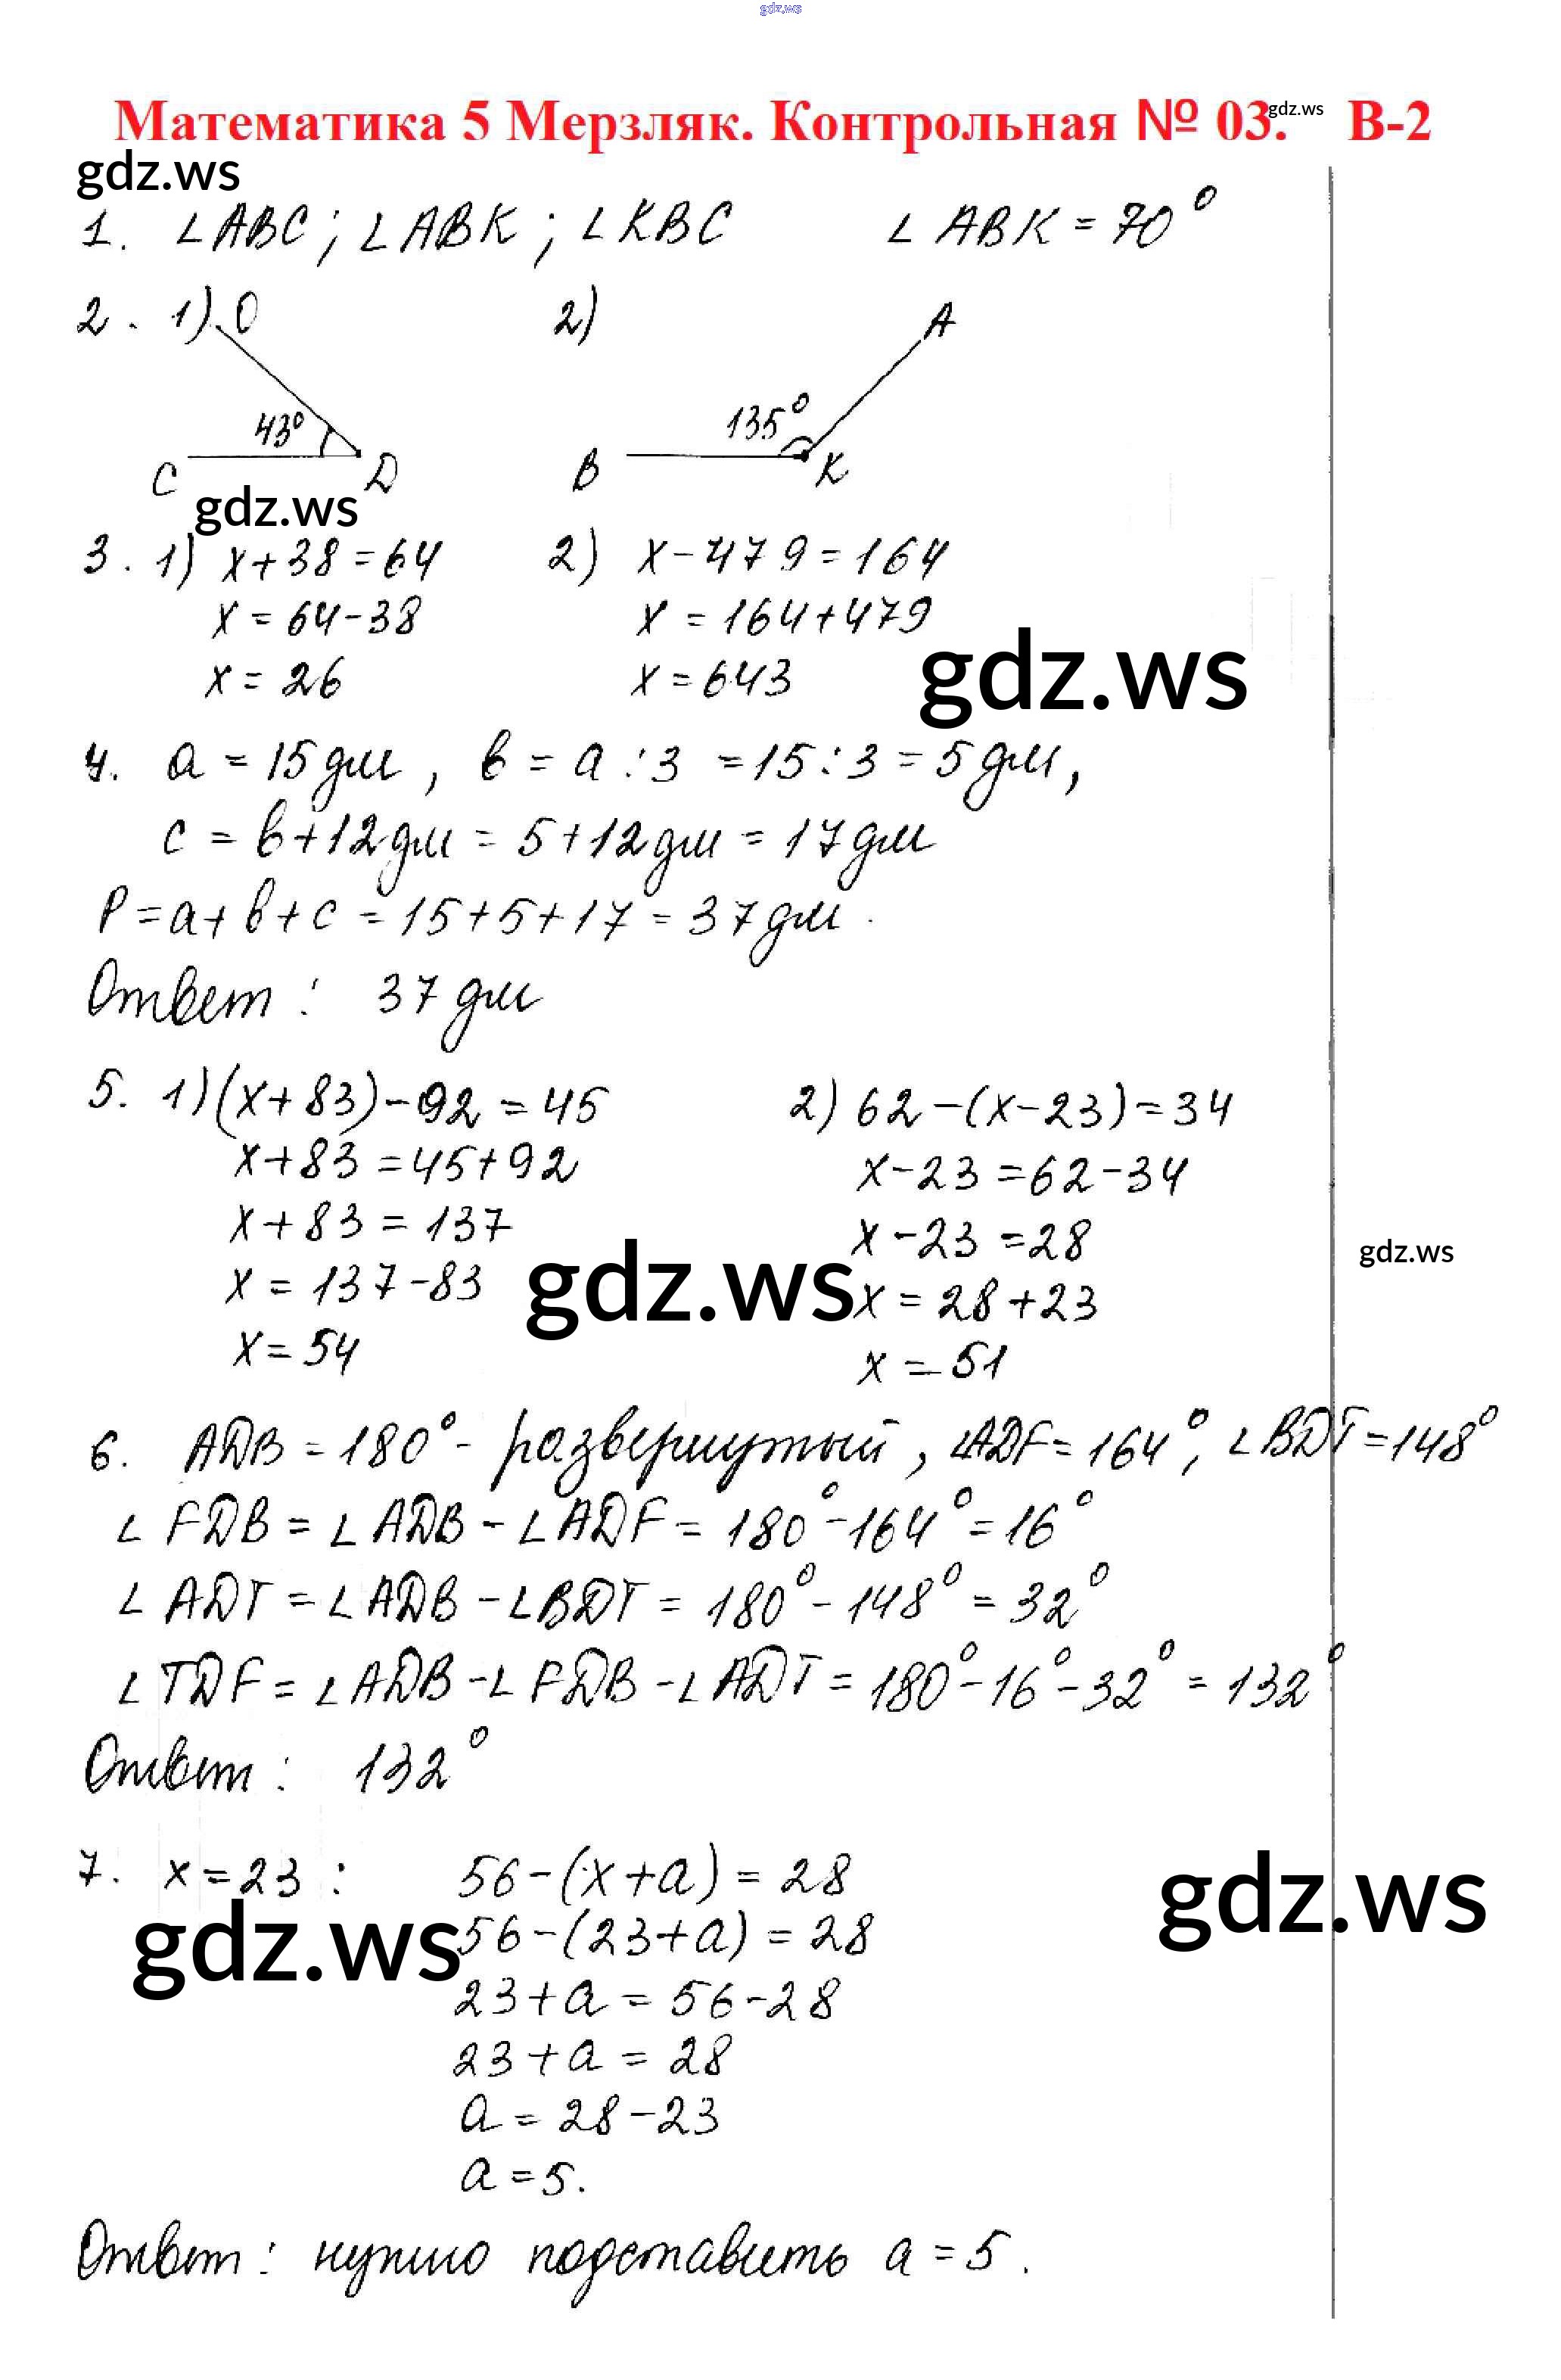 gdz.ws
Математика 5 Мерзляк. Контрольная № 03. В-2
gdz.ws
gdz.ws
1. ∠ABC; ∠ABK; ∠KBC ∠ABK = 70°
2. 1) O 2) A
43° 135°
C D B K
gdz.ws
3. 1) x+38=64 2) x-479=164
x=64-38 x=164+479
x=26 x=643
gdz.ws
4. a=15дм, b=a:3=15:3=5дм,
c=b+12дм=5+12дм=17дм
P=a+b+c=15+5+17=37дм.
Ответ: 37дм
5. 1) (x+83)-92=45 2) 62-(x-23)=34
x+83=45+92 x-23=62-34
x+83=137 x-23=28
x=137-83 x=28+23
x=54 x=51
gdz.ws
gdz.ws
6. ADB=180°- развернутый, ∠ADF=164°, ∠BDT=148°
∠FDB=∠ADB-∠ADF=180°-164°=16°
∠ADT=∠ADB-∠BDT=180°-148°=32°
∠TDF=∠ADB-∠FDB-∠ADT=180°-16°-32°=132°
Ответ: 132°
7. x=23: 56-(x+a)=28
56-(23+a)=28
23+a=56-28
23+a=28
a=28-23
a=5.
gdz.ws
gdz.ws
Ответ: нужно подставить a=5.